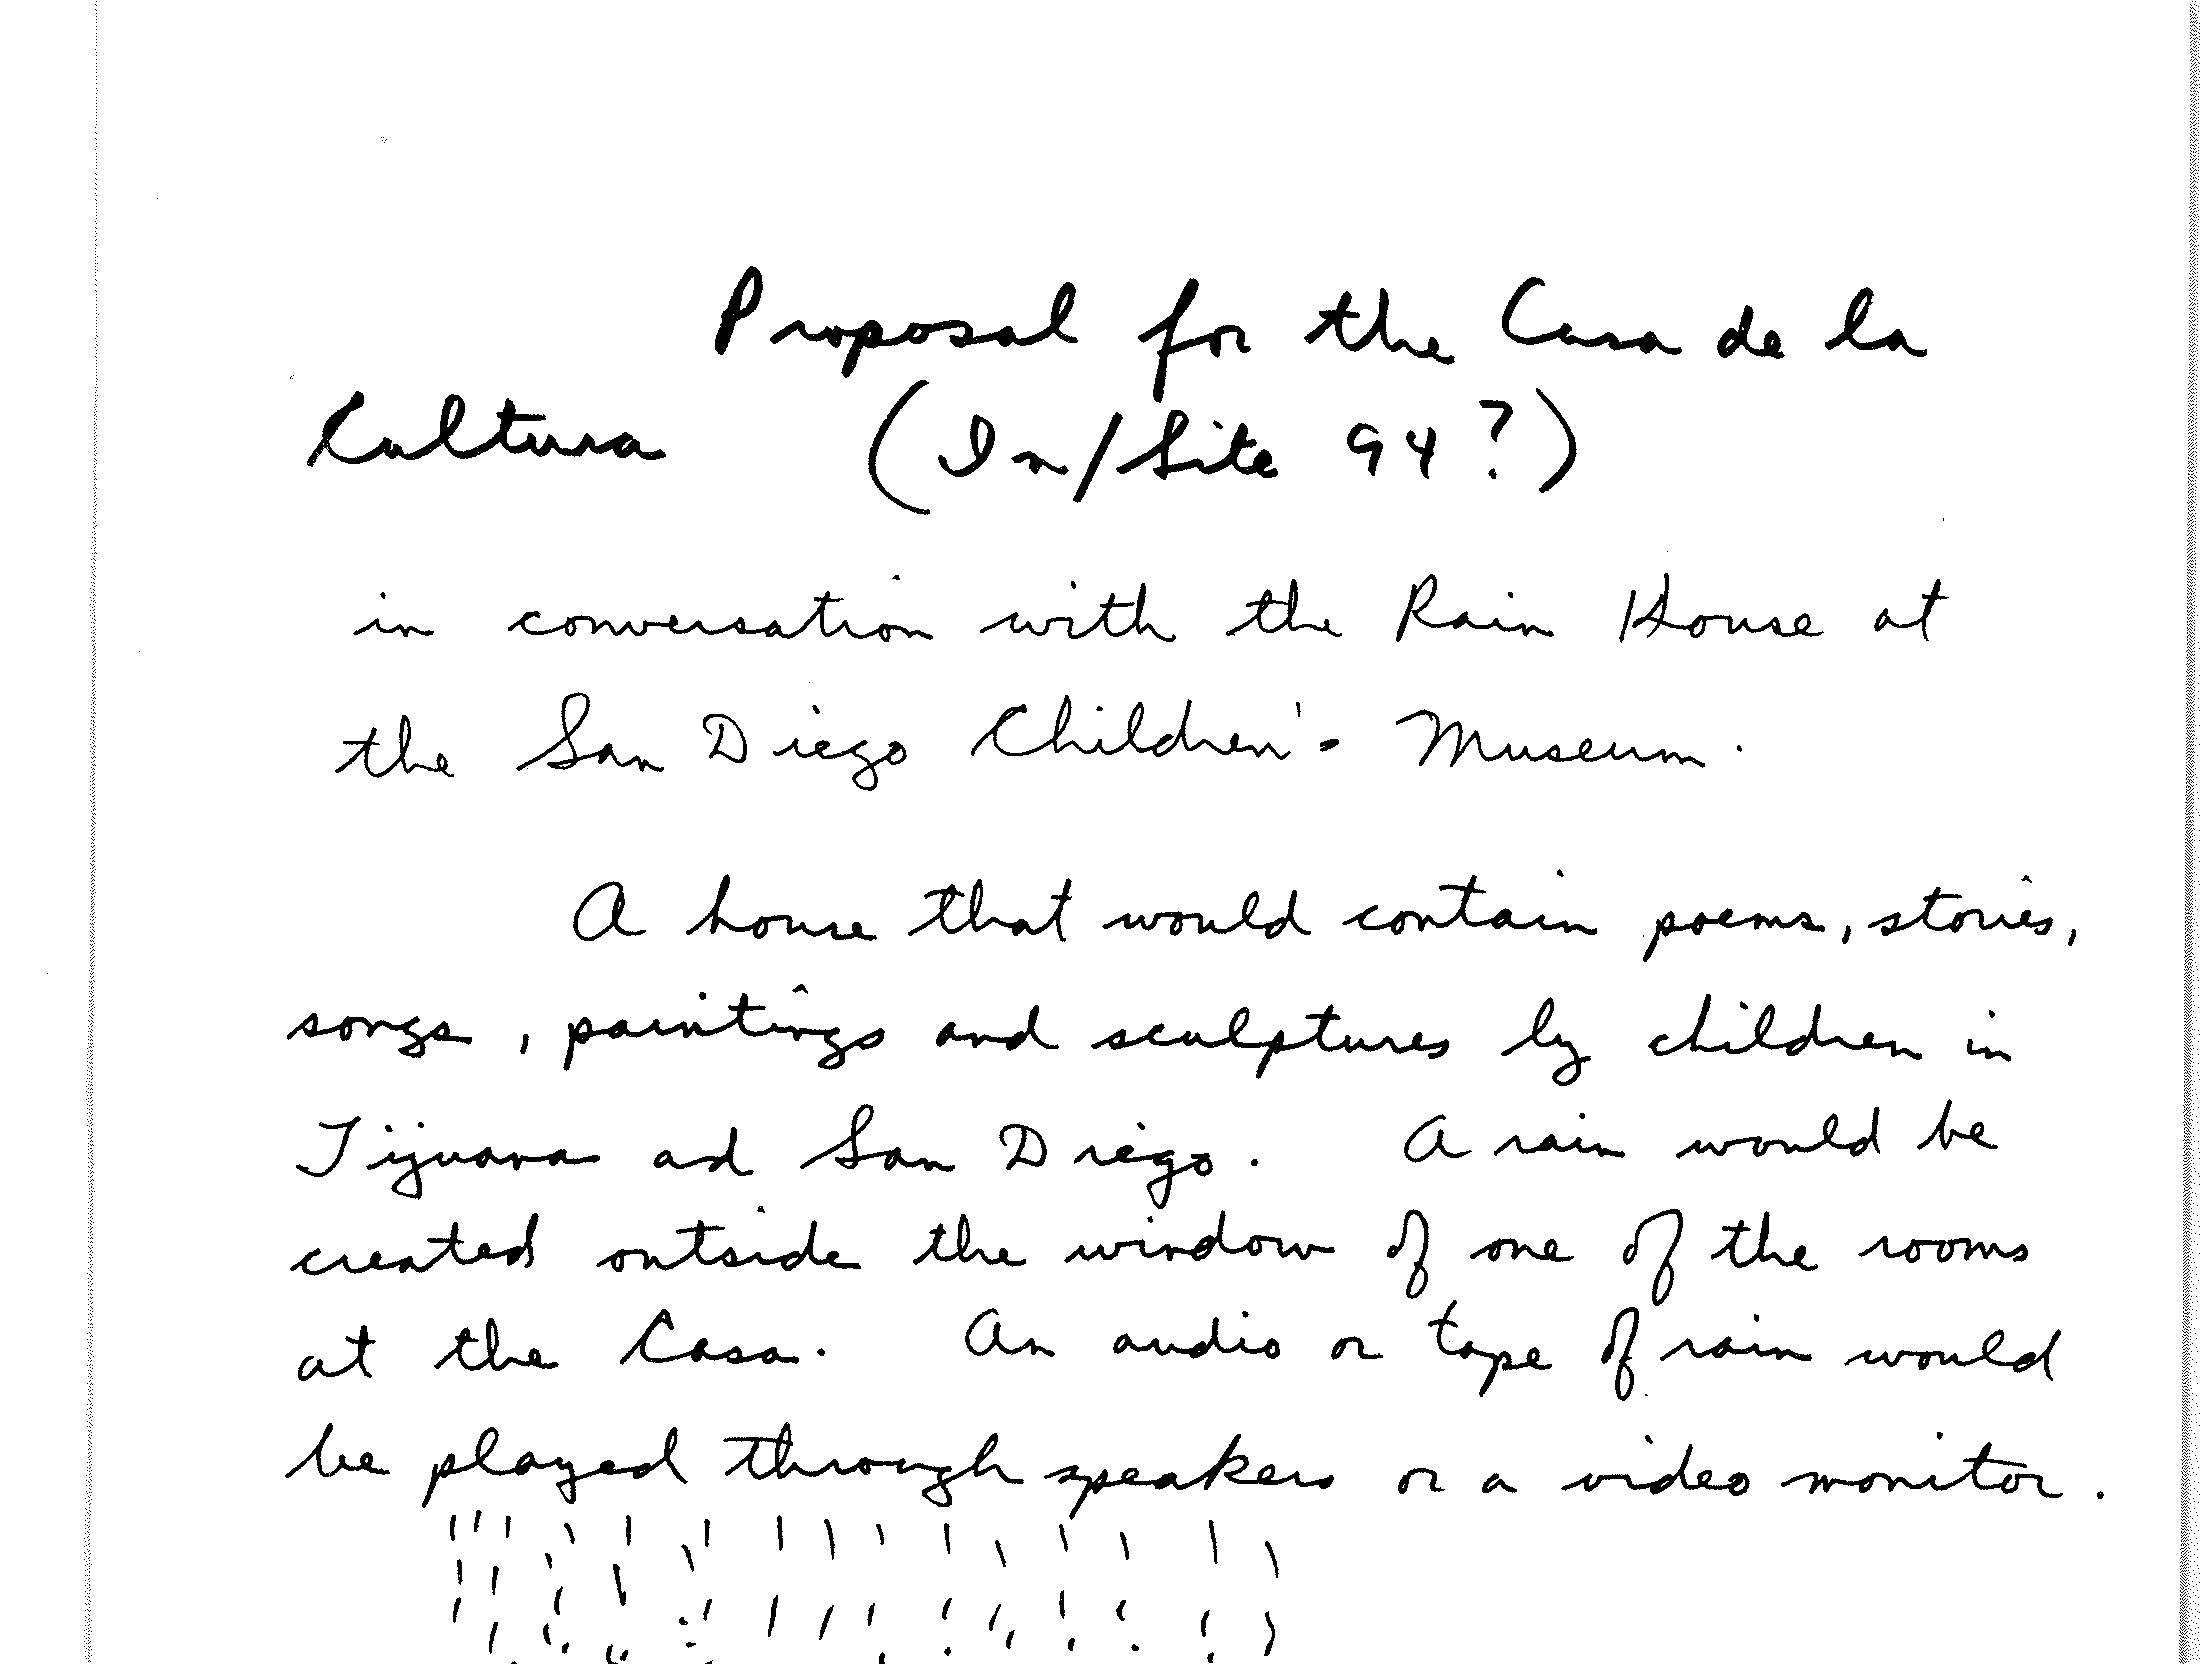 Proposal for the Casa de la
Cultura (In/Site 94?)
in conversation with the Rain House at
the San Diego Children's Museum.
A house that would contain poems, stories,
songs, paintings and sculptures by children in
Tijuana ad San Diego. A rain would be
created outside the window of one of the rooms
at the Casa. An audio or tape of rain would
be played through speakers or a video monitor.